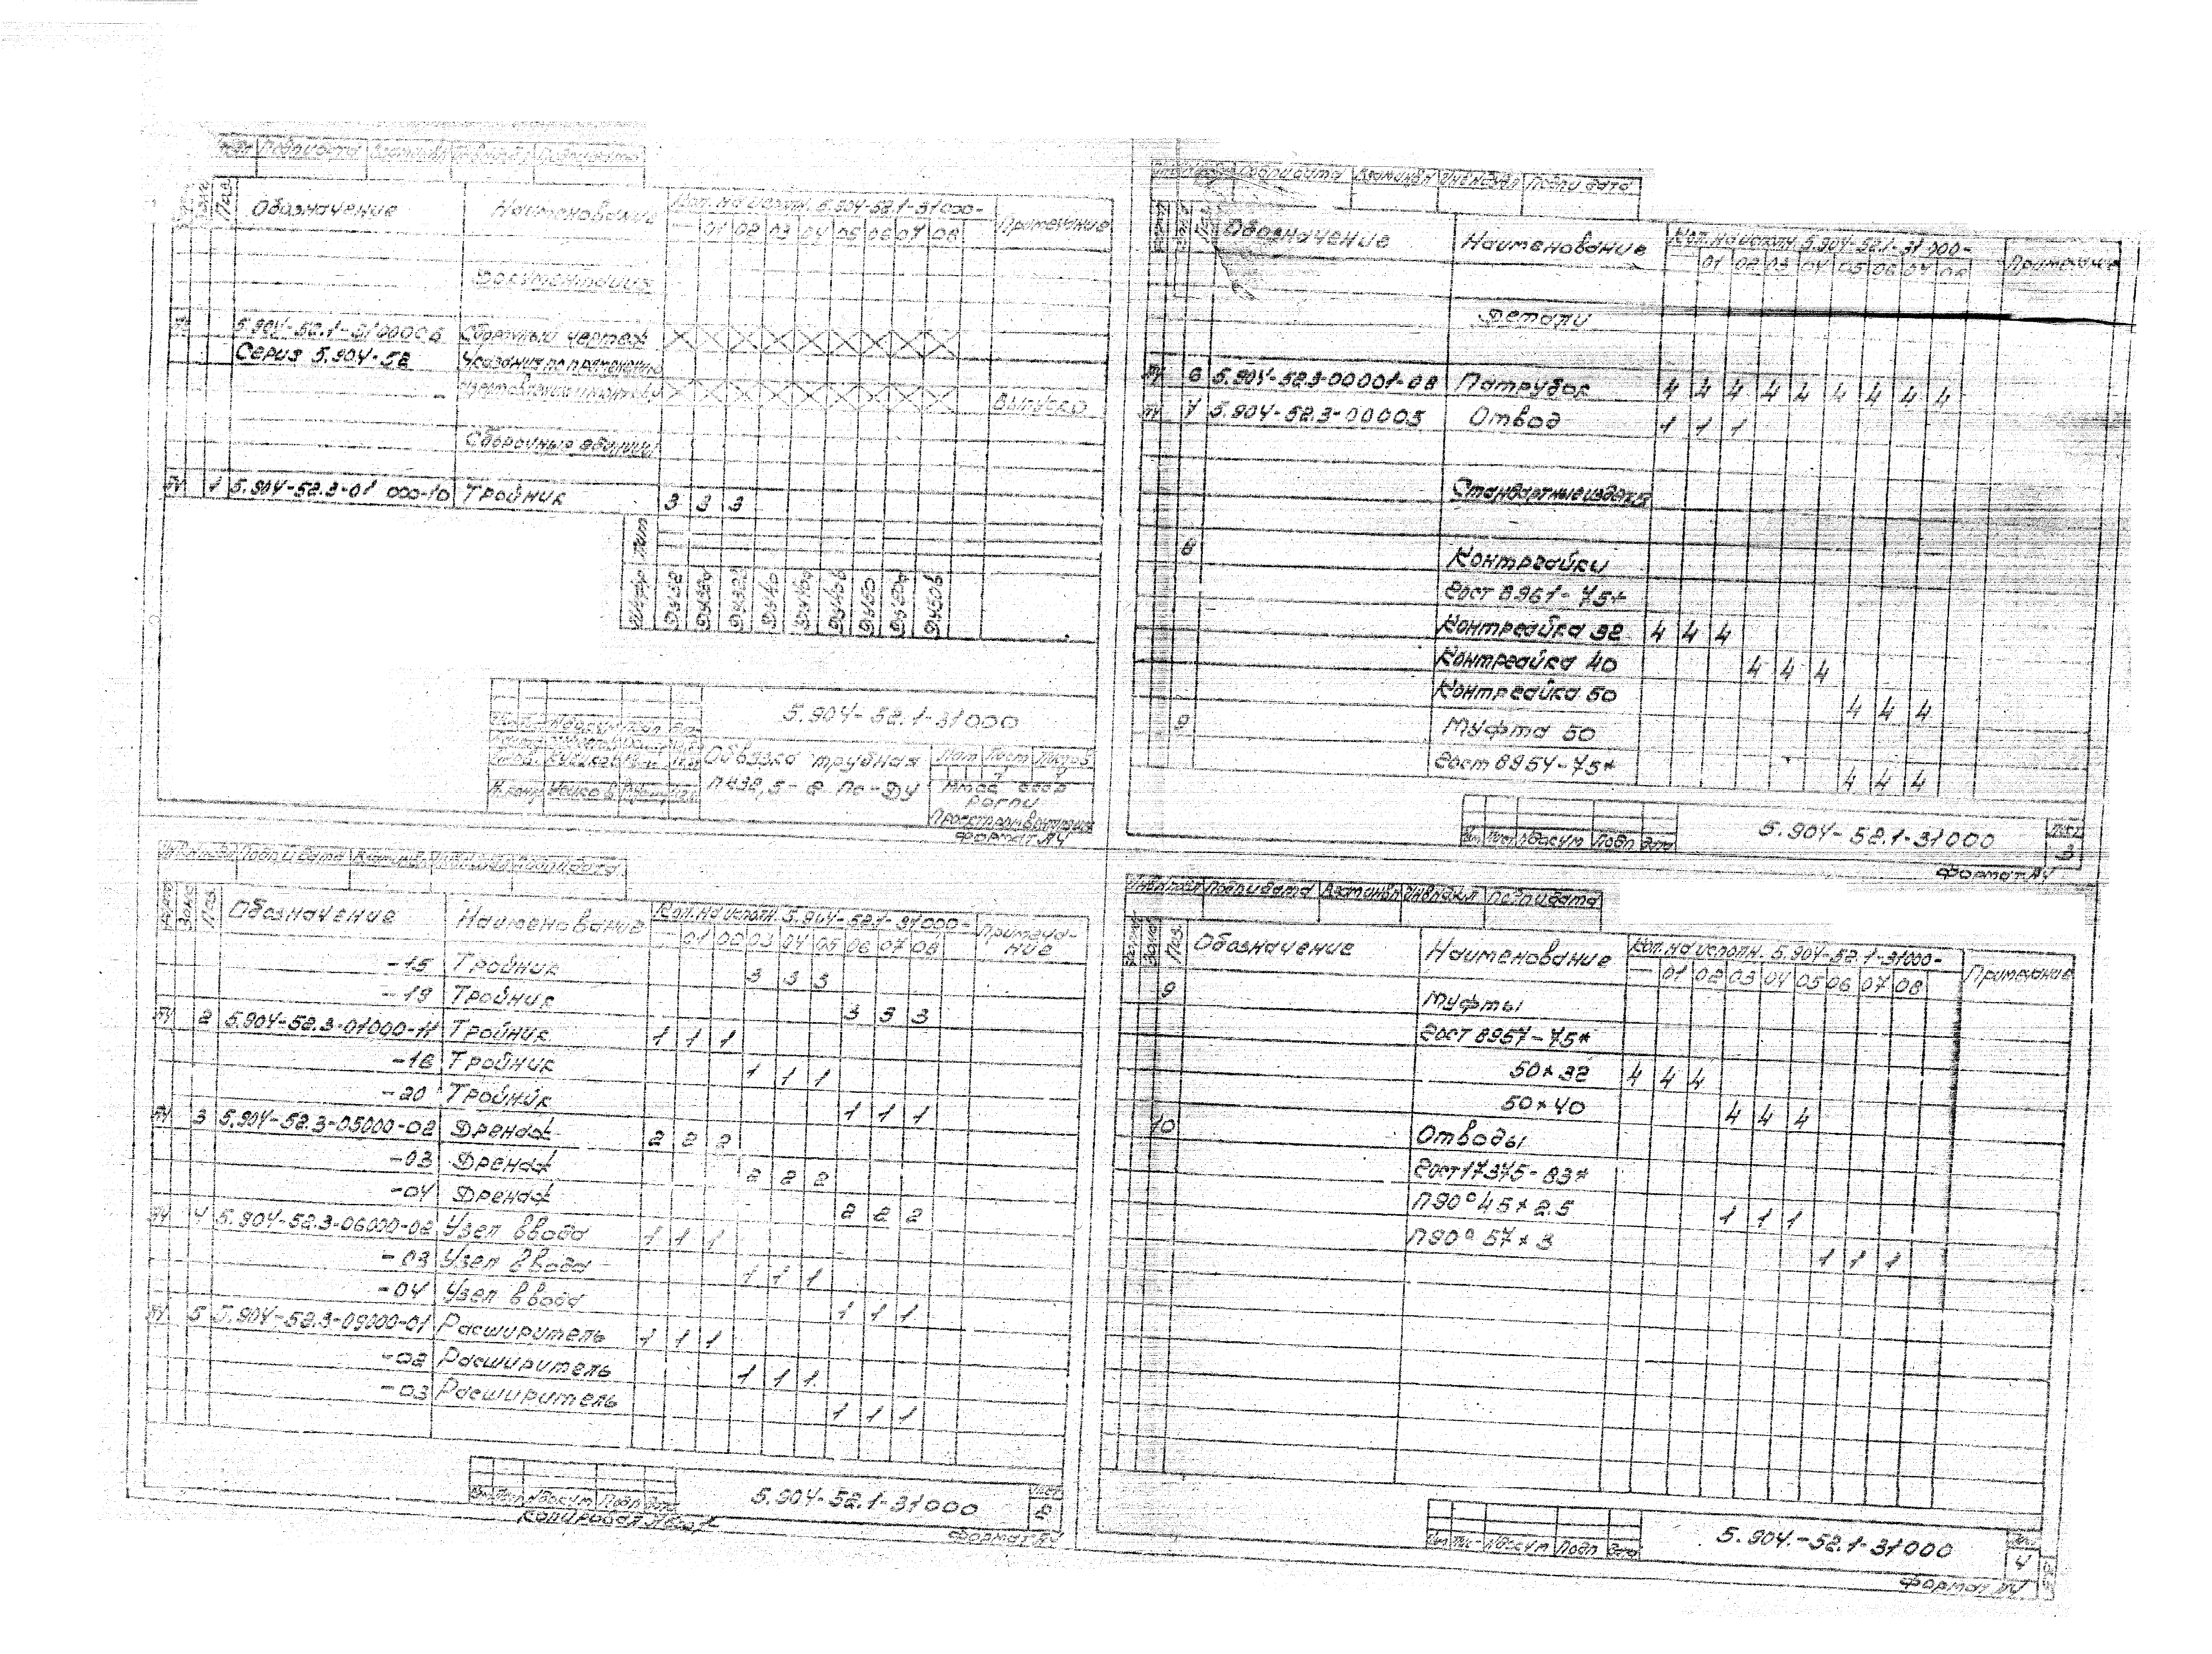 Подп и дата
Поз.
Обозначение
Наименование
Кол. на исполн. 5.904-52.1-31000-
Примечание
- 01 02 03 04 05 06 07 08
Документация
5.904-52.1-31000СБ Сборочный чертеж
Серия 5.904-52 Указания по применению
Сборочные единицы
БЧ 1 5.904-52.3-01 000-10 Тройник 3 3 3
Шифр Лит
Ду32 Ду32а Ду32б Ду40 Ду40а Ду40б Ду50 Ду50а Ду50б
5.904-52.1-31000
Обвязка трубная
Лит Лист
Проектпромвентиляция
Формат А4
Обозначение
Наименование
Кол. на исполн. 5.904-52.1-31000-
Примеча-
ние
- 01 02 03 04 05 06 07 08
-15 Тройник 3 3 3
-19 Тройник 3 3 3
БЧ 2 5.904-52.3-01000-11 Тройник 1 1 1
-16 Тройник 1 1 1
-20 Тройник 1 1 1
БЧ 3 5.904-52.3-05000-02 Дренаж 2 2 2
-03 Дренаж 2 2 2
-04 Дренаж 2 2 2
БЧ 4 5.904-52.3-06000-02 Узел ввода 1 1 1
-03 Узел ввода 1 1 1
-04 Узел ввода 1 1 1
БЧ 5 5.904-52.3-09000-01 Расширитель 1 1 1
-02 Расширитель 1 1 1
-03 Расширитель 1 1 1
Изм Лист № докум Подп Дата
5.904-52.1-31000
Лист
2
Копировал
Формат А4
Подп и дата Взам инв Инв № дубл Подп и дата
Обозначение
Наименование
Кол. на исполн. 5.904-52.1-31000-
Примечание
01 02 03 04 05 06 07 08
Детали
БЧ 6 5.904-52.3-00001-08 Патрубок 4 4 4 4 4 4 4 4 4
БЧ 7 5.904-52.3-00005 Отвод 1 1 1
Стандартные изделия
8 Контргайки
Гост 8961-75*
Контргайка 32 4 4 4
Контргайка 40 4 4 4
Контргайка 50 4 4 4
9 Муфта 50
Гост 8954-75* 4 4 4
Изм Лист № докум Подп Дата
5.904-52.1-31000
Лист
3
Формат А4
Инв № подл Подп и дата Взам инв Инв № дубл Подп и дата
Поз.
Обозначение
Наименование
Кол. на исполн. 5.904-52.1-31000-
Примечание
- 01 02 03 04 05 06 07 08
9 Муфты
Гост 8957-75*
50×32 4 4 4
50×40 4 4 4
10 Отводы
Гост 17375-83*
П90° 45×2.5 1 1 1
П90° 57×3 1 1 1
Изм Лис № докум Подп Дата
5.904.-52.1-31000
Лист
4
Формат А4